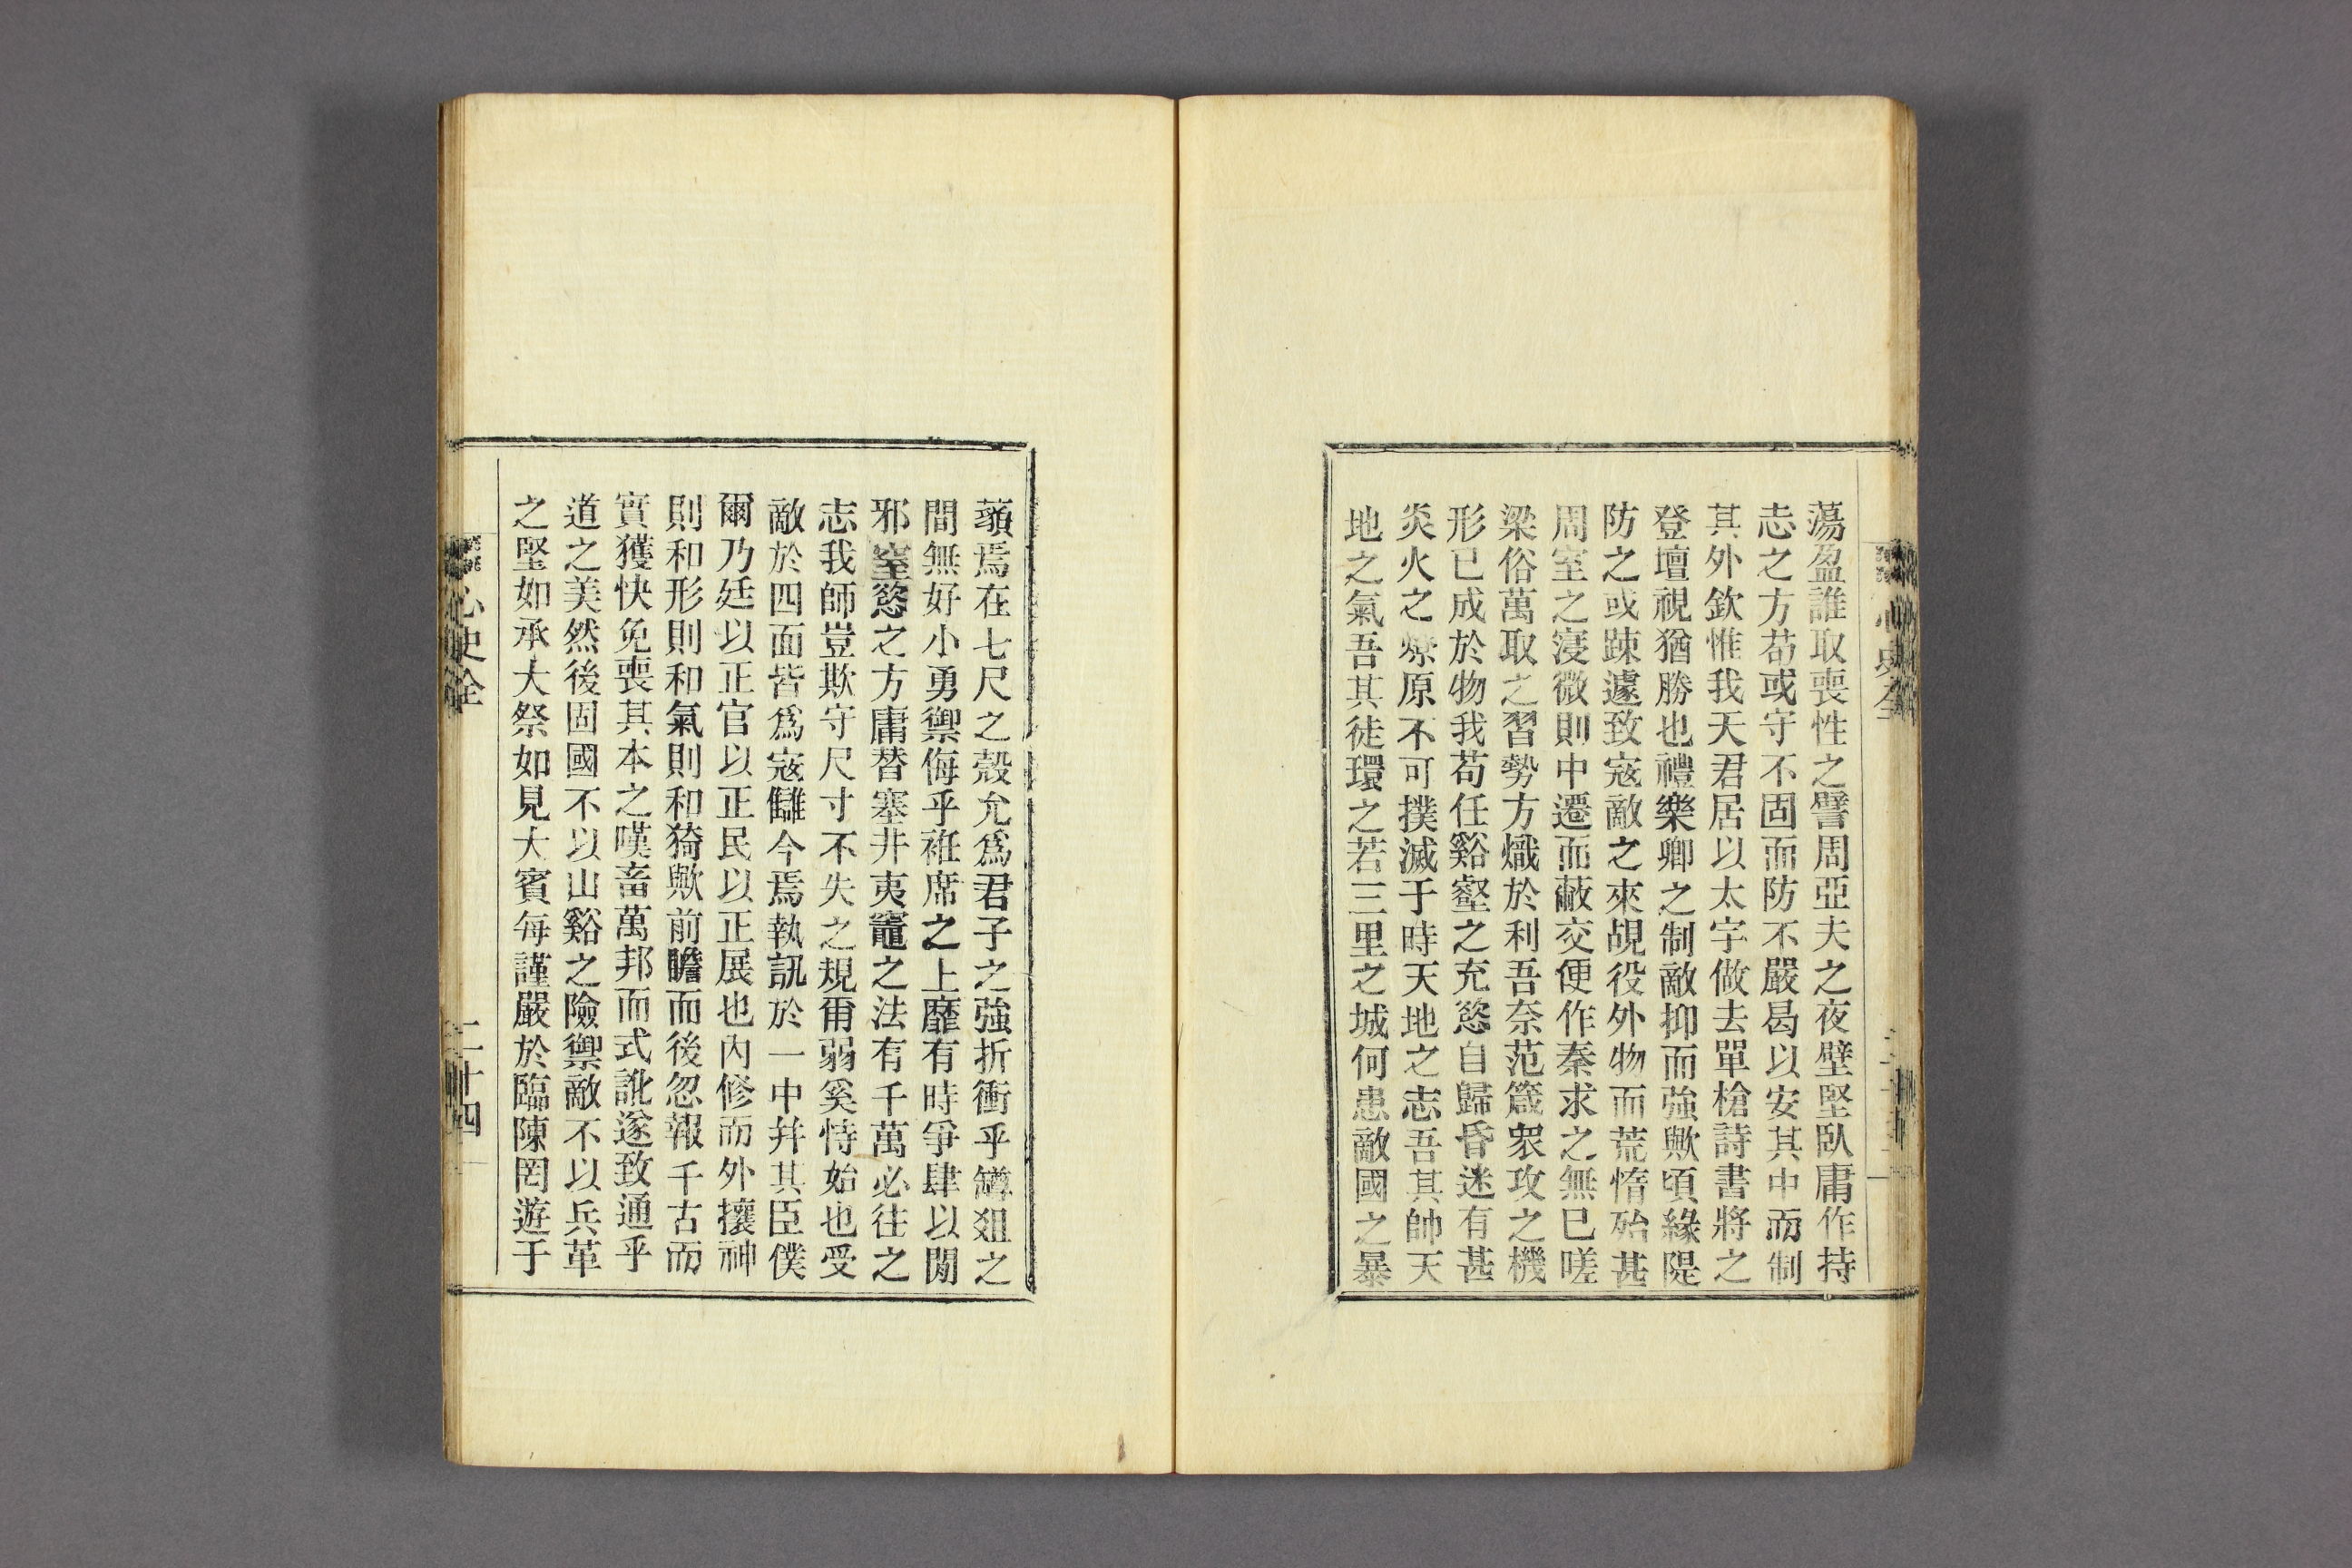 蕩盈誰取喪性之譬周亞夫之夜壁堅臥庸作持
志之方苟或守不固而防不嚴曷以安其中而制
其外欽惟我天君居以太宇做去單槍詩書將之
登壇視猶勝也禮樂卿之制敵抑而強歟頃緣隄
防之或踈遽致寇敵之來覘役外物而荒惰殆甚
周室之寖微則中遷而蔽交便作秦求之無已嗟
梁俗萬取之習勢方熾於利吾奈范箴衆攻之機
形已成於物我苟任谿壑之充慾自歸昏迷有甚
炎火之燎原不可撲滅于時天地之志吾其帥天
地之氣吾其徒環之若三里之城何患敵國之暴
心史全
蘋焉在七尺之殼允爲君子之強折衝乎罇爼之
間無好小勇禦侮乎袵席之上靡有時爭肆以閑
邪窒慾之方庸替塞井夷竈之法有千萬必往之
志我師豈欺守尺寸不失之規爾弱奚恃始也受
敵於四面皆爲寇讎今焉執訊於一中幷其臣僕
爾乃廷以正官以正民以正展也內修而外攘神
則和形則和氣則和猗歟前瞻而後忽報千古而
實獲快免喪其本之嘆畜萬邦而式訛遂致通乎
道之美然後固國不以山谿之險禦敵不以兵革
之堅如承大祭如見大賓每謹嚴於臨陳罔遊于
心史全
二十四